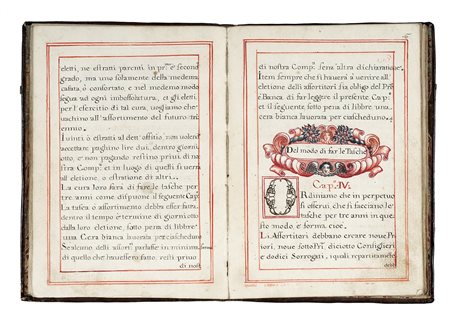 eletti, ne estratti parenti in pr.º è secondo
grado, ma uno solamente della medema
casata, è confortato e nel medemo modo
segua ad ogni imbossolatura, et gli eletti
per l'esercitio di tal cura, uogliamo che
uachino all'assortimento del futuro trì-
ennio.
I uinti ò estratti al dett'offitio non uolendo
accettare paghino lire dui, dentro giorni
otto, e non pagando restino privi di no-
stra Comp.ª et in luogo di questi si uerrà
all'elettione, o estratione di altri.
La cura loro sarà di fare le tasche per
tre anni come dispuone il seguente Cap.º
La tasca ò assortimento debba esser fatta
dentro il termine di giorni otto
dalla loro elettione, et estratione, in pena di
una Cera bianca lauorata per ciascheduno
Se alcuno delli assort.ri parlasse in minima
di quello che hauessero fatto resti priuo
di nost
di nostra Comp.ª senz'altra dichiaratione.
Item sempre che si hauerà à uenire all'
elettione delli assortitori sia obligo del Pri-
è Banca di far leggere il presente Cap.º
et il seguente sotto pena di libbre una
cera bianca lauorata per ciascheduno.
Del modo di far le Tasche
Cap.º IV.
Ordiniamo che in perpetuo
si osserui che si facciano le
tasche per tre anni in que
sto modo e forma cioè.
Li Assortitori debbano creare noue P
riori, noue sotto Pri, diciotto Consiglieri
e dodici Sorrogati, i quali repartitamēte